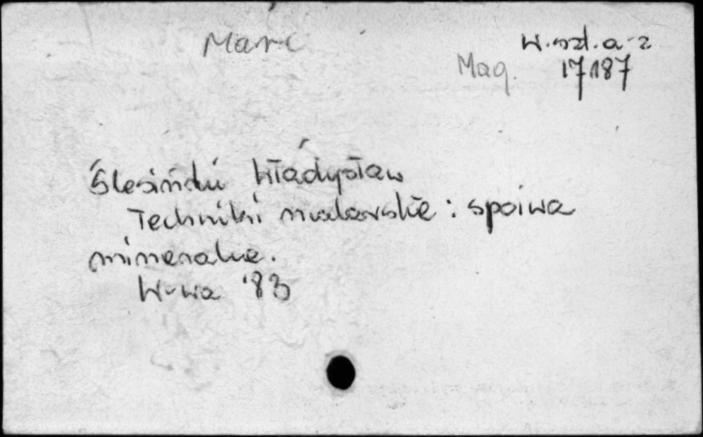 W.szt. a-z
Mag. 17187
Ślesiński Władysław
Techniki malarskie : spoiwa
mineralne.
W-wa '83